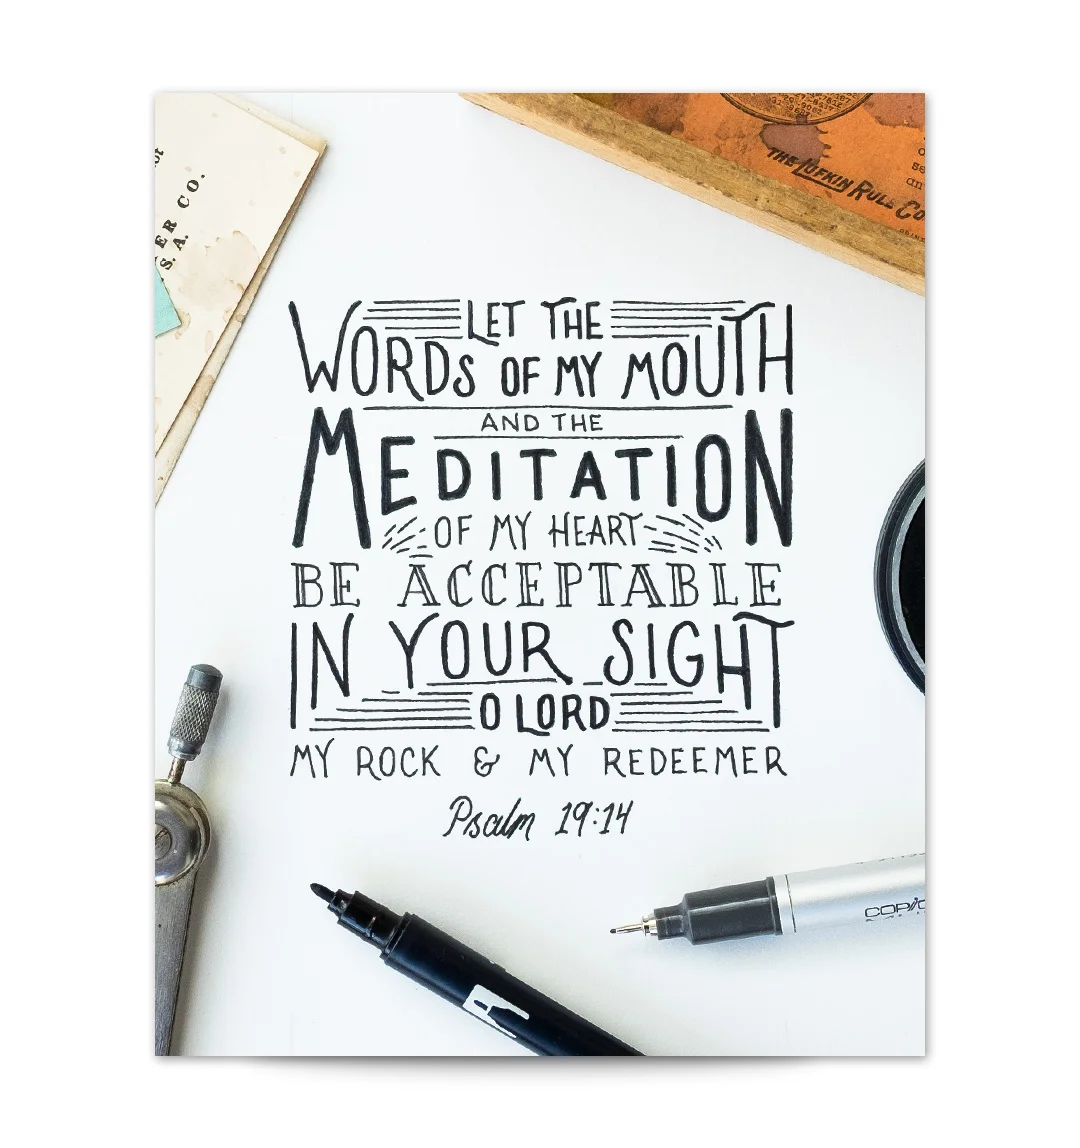 ER CO.
S. A.
THE LUFKIN RULE CO
LET THE
WORDS OF MY MOUTH
AND THE
MEDITATION
OF MY HEART
BE ACCEPTABLE
IN YOUR SIGHT
O LORD
MY ROCK & MY REDEEMER
Psalm 19:14
COPIC